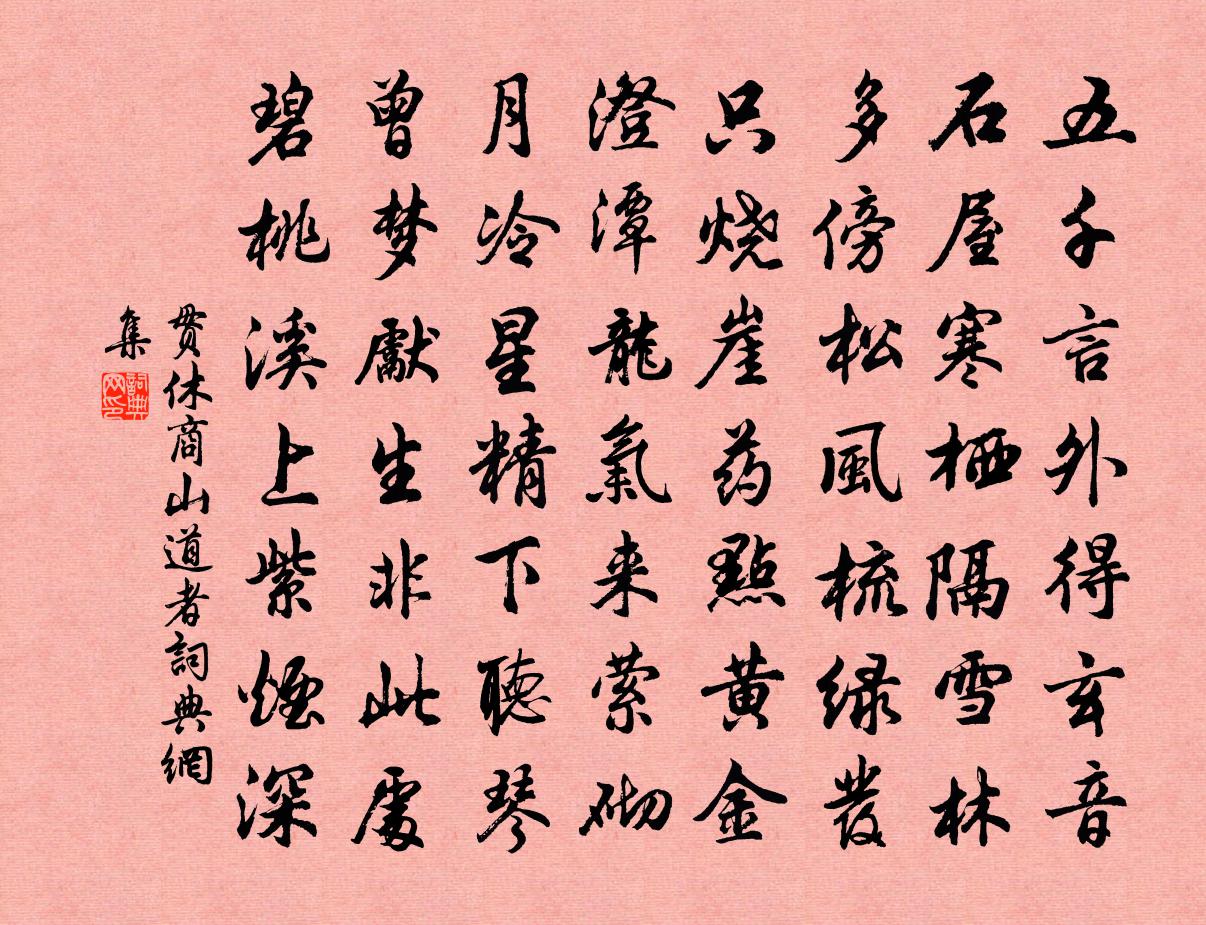 五千言外得玄音
石屋寒栖隔雪林
多傍松風梳绿髮
只烧崖药點黄金
澄潭龍氣来萦砌
月冷星精下聽琴
曾梦獻生非此處
碧桃溪上紫煙深
贯休商山道者詞典網
集
詞典
网印